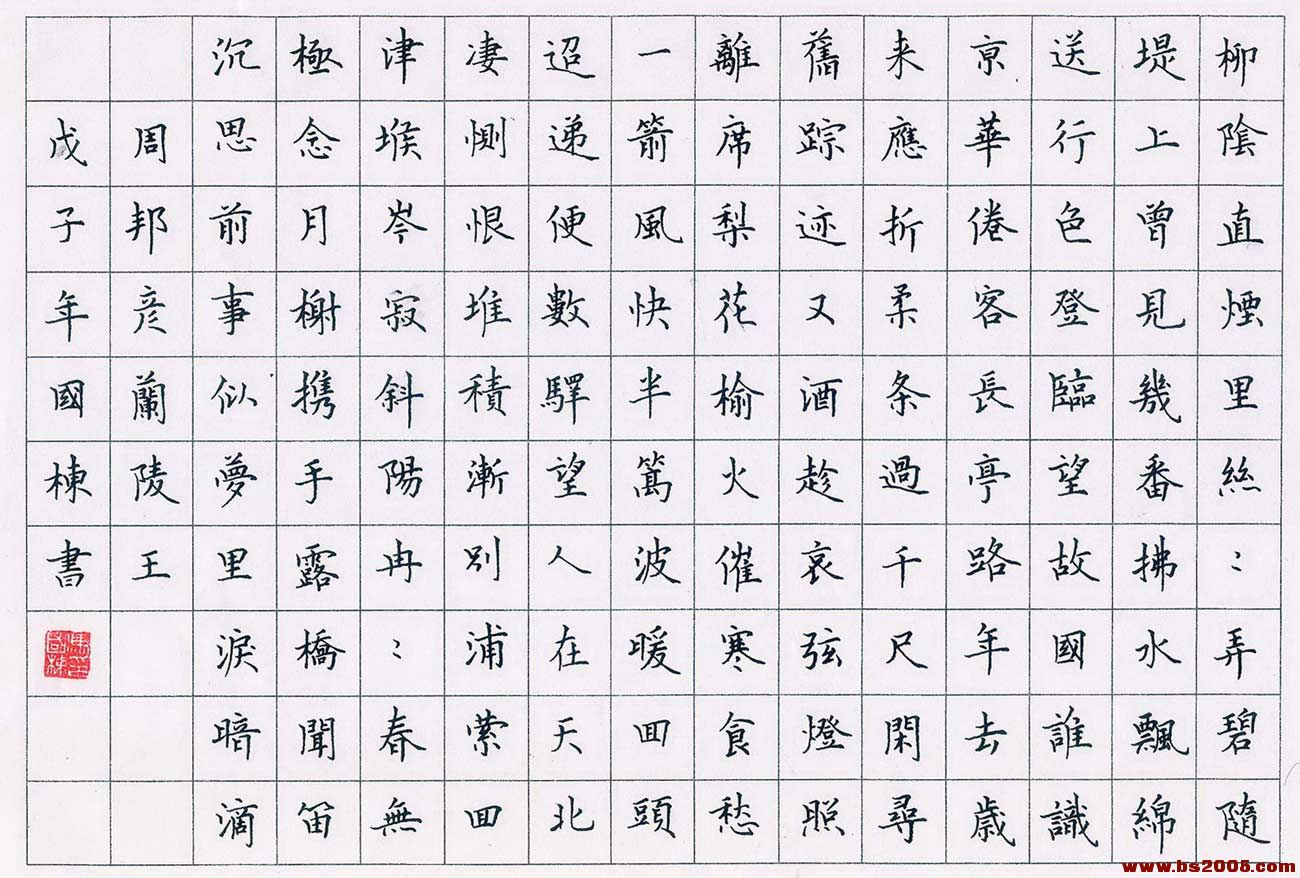 柳陰直煙里絲〻弄碧隨
堤上曾見幾番拂水飄綿
送行色登臨望故國誰識
亰華倦客長亭路年去歲
来應折柔条過千尺閑尋
舊踪迹又酒趁哀弦燈照
離席梨花榆火催寒食愁
一箭風快半篙波暖回頭
迢递便數驛望人在天北
凄惻恨堆積漸別浦萦回
津堠岑寂斜陽冉〻春無
極念月榭携手露橋聞笛
沉思前事似夢里淚暗滴
周邦彦蘭陵王
戊子年國棟書
www.bs2005.com